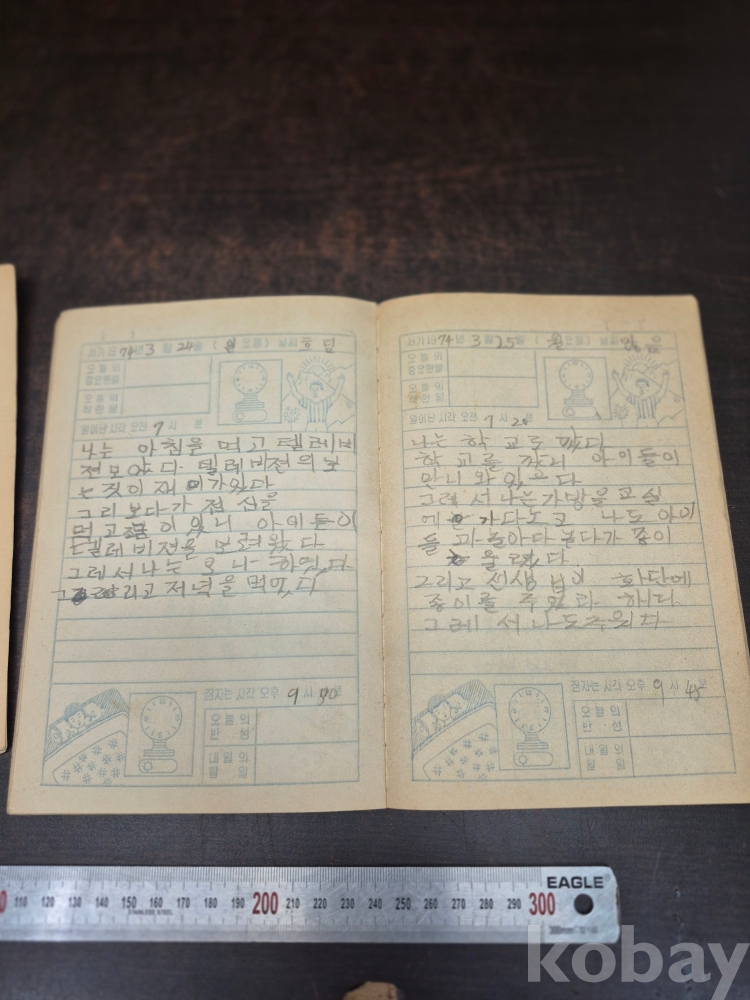 서기 1974년 3월 24일 (월요일) 날씨 흐림
오늘의
중요한일
오늘의
착한일
일어난 시각 오전 7시 분
나는 아침을 먹고 텔레비
전보았다 텔레비전의보
는것이재미가있다
그리보다가 점심을
먹고 이있니 아이들이
텔레비전을 보러왔다
그레서나는 오나 하였다
그리고저녁을먹었다
잠자는 시각 오후 9시 30분
오늘의
반성
내일의
할일
서기 1974년 3월 25일 (월요일) 날씨 맑음
오늘의
중요한일
오늘의
착한일
일어난 시각 오전 7시 20
나는 학교로 갔다
학교를 가니 아이들이
만니 와있다
그레서나는가방을교실
에 가다노코 나도 아이
들과놀아다 놀다가 종이
을렸다
그리고 선생님이 화단에
종이를 주있다 해다
그레서나도주웠다
잠자는 시각 오후 9시 45분
오늘의
반성
내일의
할일
200
210
220
230
240
250
260
270
280
290
300
EAGLE
STAINLESS STEEL
kobay